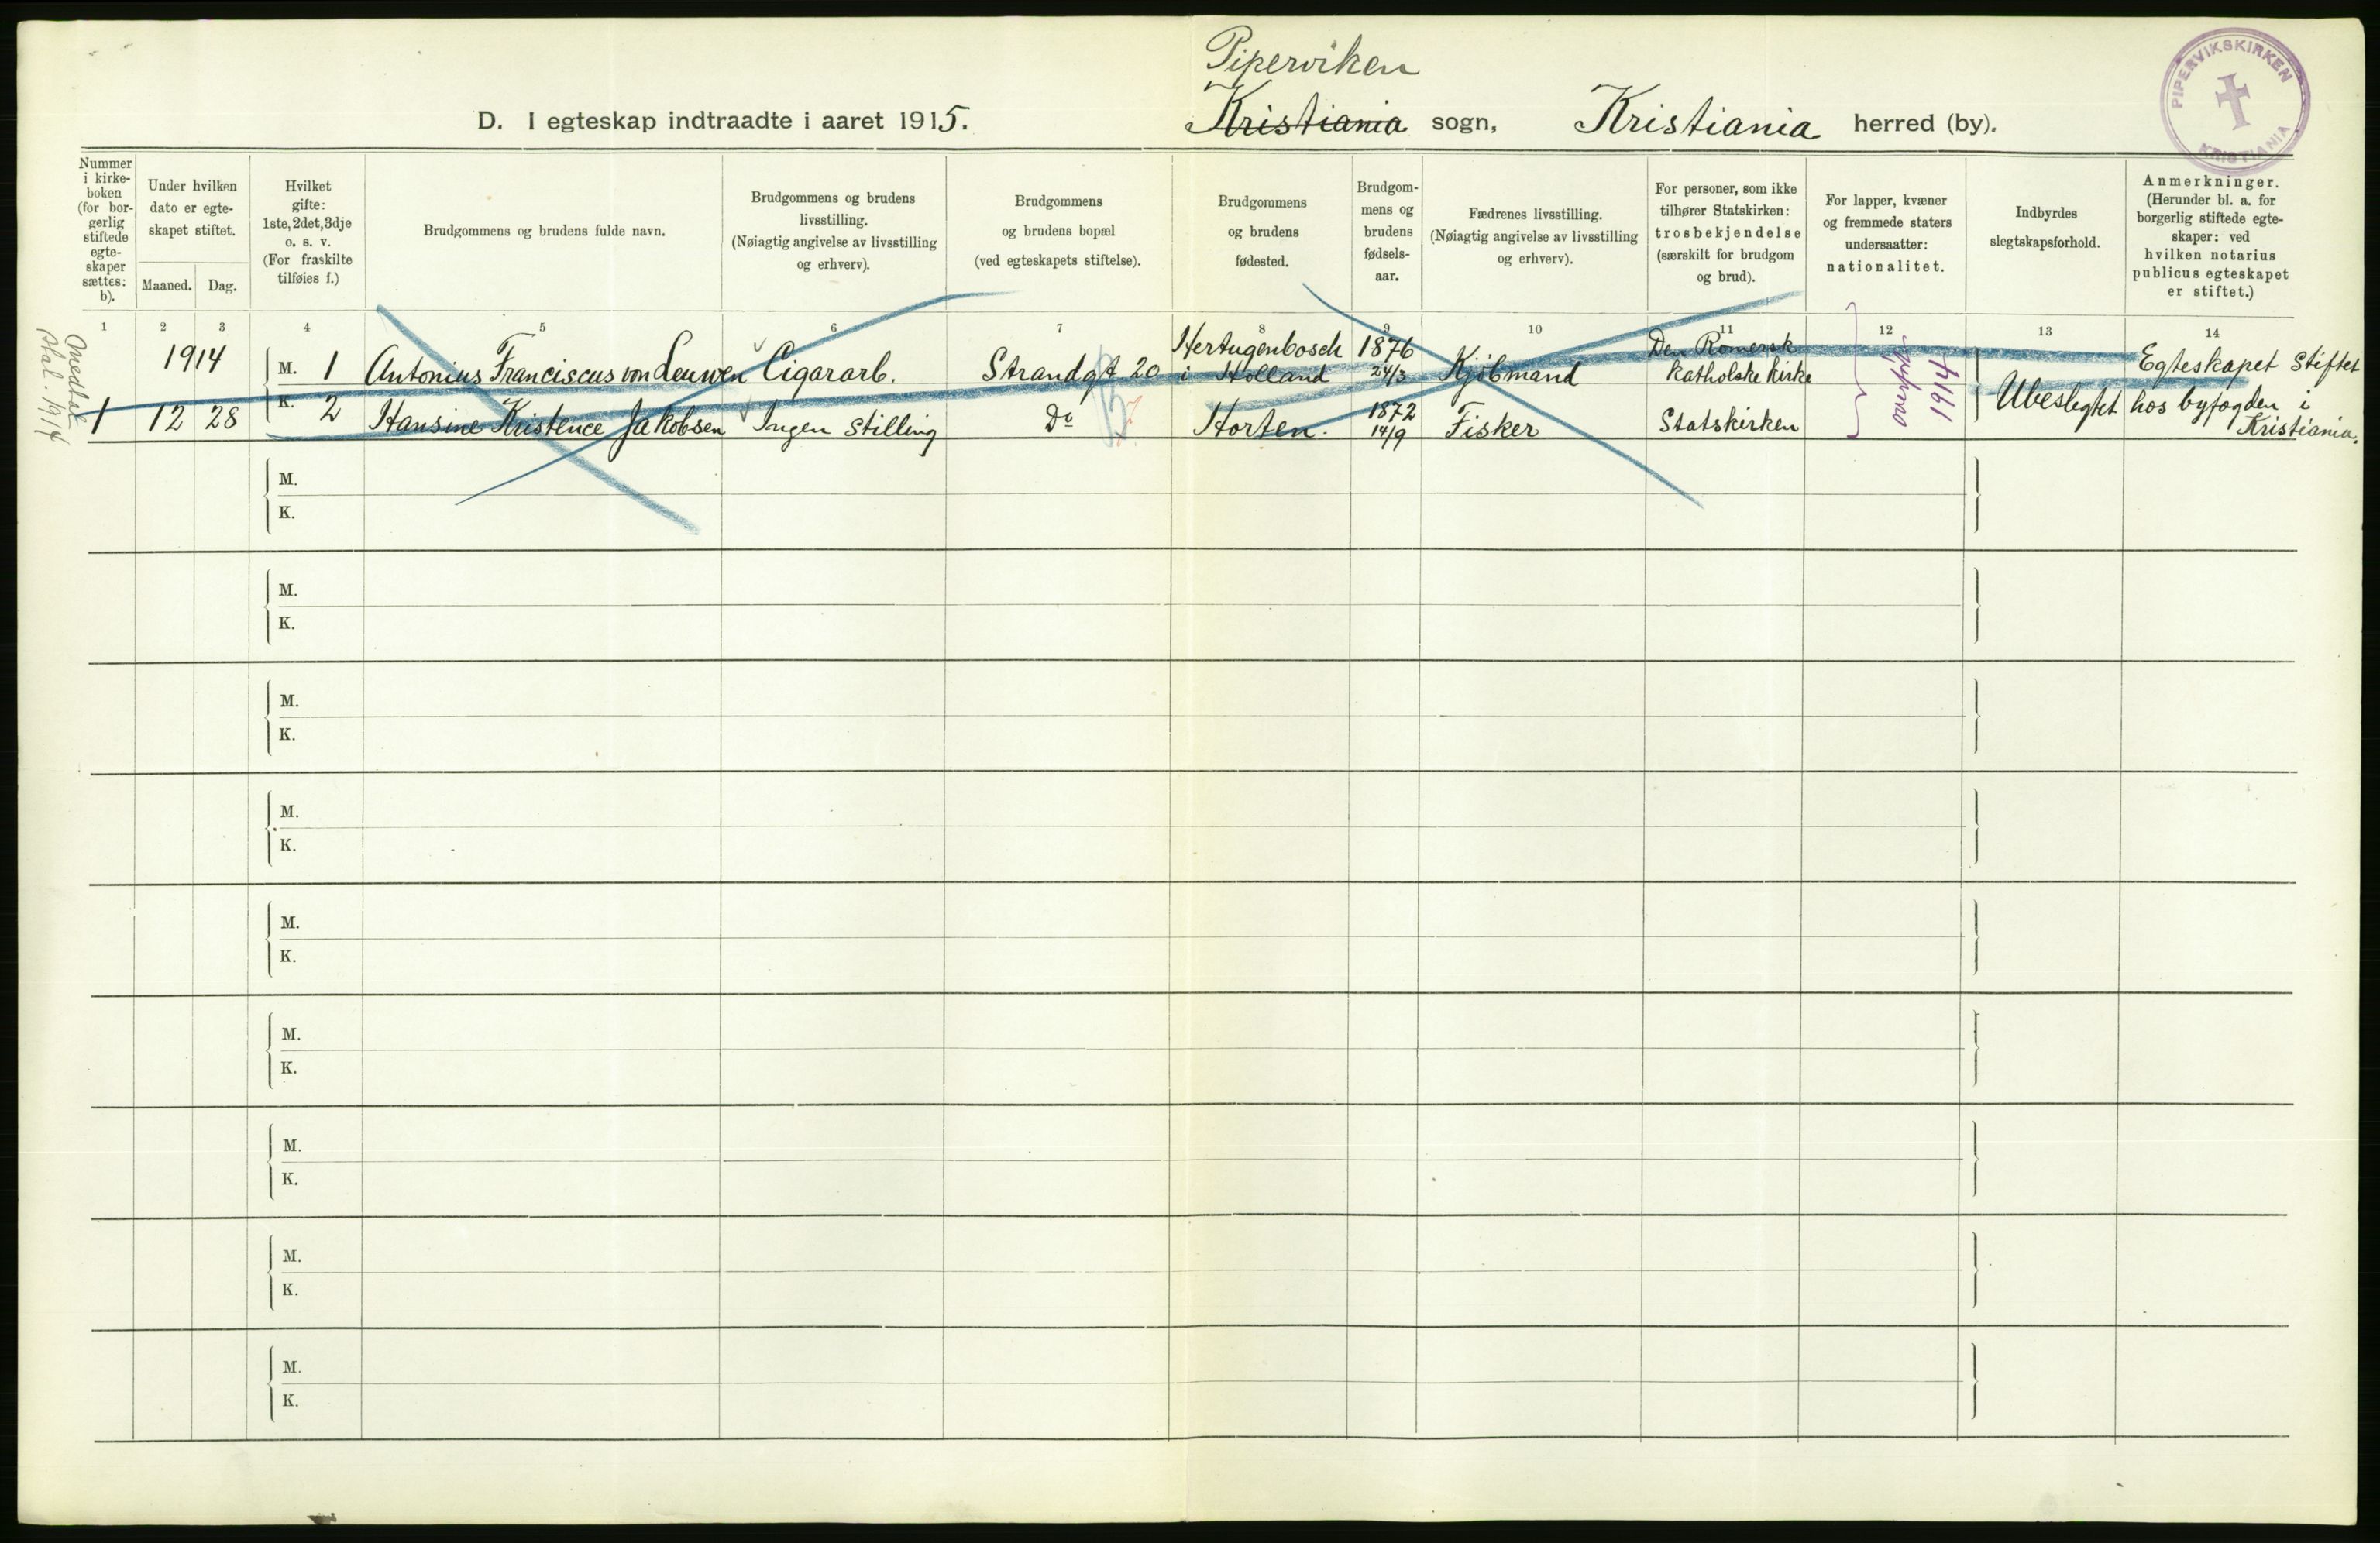 Piperviken
D. I egteskap indtraadte i aaret 1915. Kristiania sogn, Kristiania herred (by).
PIPERVIKSKIRKEN
KRISTIANIA
Nummer i kirke-boken (for bor-gerlig stiftede egte-skaper sættes: b).
Under hvilken dato er egte-skapet stiftet.
Maaned. Dag.
Hvilket gifte: 1ste, 2det, 3dje o. s. v. (For fraskilte tilføies f.)
Brudgommens og brudens fulde navn.
Brudgommens og brudens livsstilling. (Nøiagtig angivelse av livsstilling og erhverv).
Brudgommens og brudens bopæl (ved egteskapets stiftelse).
Brudgommens og brudens fødested.
Brudgom-mens og brudens fødsels-aar.
Fædrenes livsstilling. (Nøiagtig angivelse av livsstilling og erhverv).
For personer, som ikke tilhører Statskirken: trosbekjendelse (særskilt for brudgom og brud).
For lapper, kvæner og fremmede staters undersaatter: nationalitet.
Indbyrdes slegtskapsforhold.
Anmerkninger. (Herunder bl. a. for borgerlig stiftede egte-skaper: ved hvilken notarius publicus egteskapet er stiftet.)
1 2 3 4 5 6 7 8 9 10 11 12 13 14
Medtat
stat. 1914
1914 M. 1 Antonius Franciscus von Leuwen Cigararb. Strandgt 20 Hertugenbosch i Holland 1876 24/3 Kjøbmand Den Romersk Katholske Kirke
1 12 28 K. 2 Hansine Kristence Jakobsen Ingen stilling Do Horten. 1872 14/9 Fisker Statskirken
1914
Ubeslegtet
Egteskapet stiftet
hos byfogden i
Kristiania.
M.
K.
M.
K.
M.
K.
M.
K.
M.
K.
M.
K.
M.
K.
M.
K.
M.
K.